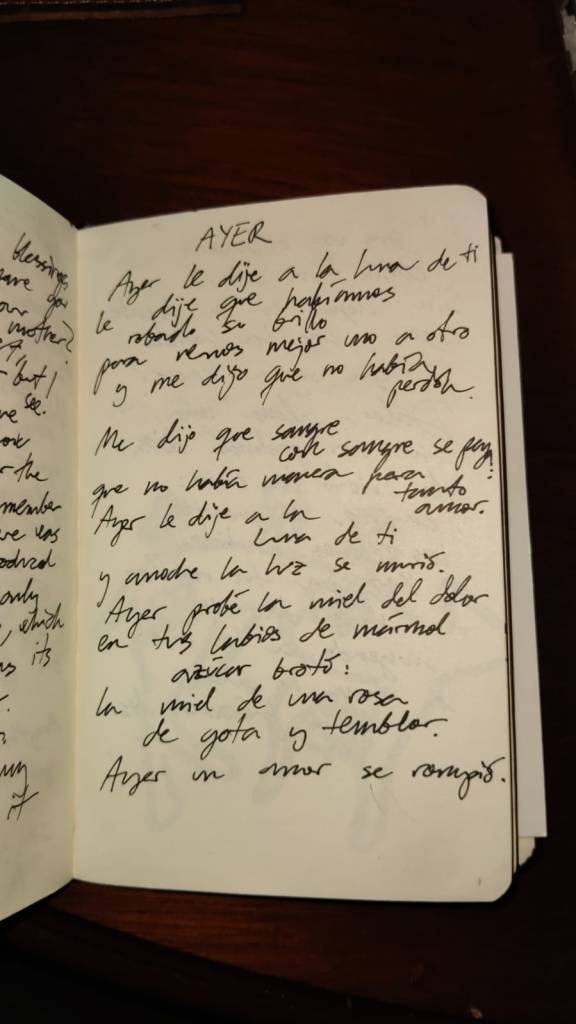 blessings
mother?
but I
see.
the
remember
only
which
its
it
AYER
Ayer le dije a la luna de ti
le dije que habíamos
robado su brillo
para vernos mejor uno a otro
y me dijo que no había
perdón.
Me dijo que sangre
con sangre se paga:
que no había manera para
tanto
amor.
Ayer le dije a la
luna de ti
y anoche la luz se murió.
Ayer probé la miel del dolor
en tus labios de mármol
azúcar brotó:
la miel de una rosa
de gota y temblor.
Ayer un amor se rompió.